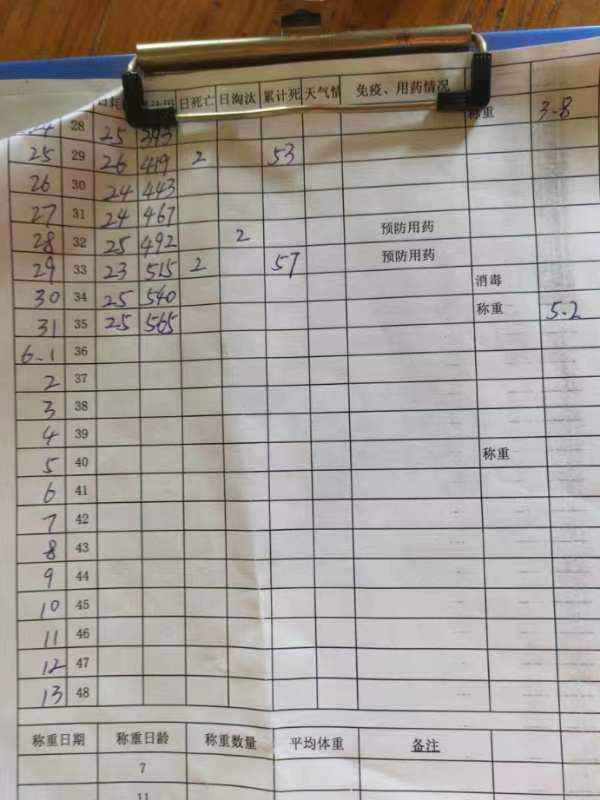 日死亡 日淘汰 累计死 天气情 免疫、用药情况
28 25 393 称重 3-8
25 29 26 419 2 53
26 30 24 443
27 31 24 467
28 32 25 492 2 预防用药
29 33 23 515 2 57 预防用药
30 34 25 540 消毒
31 35 25 565 称重 5.2
6-1 36
2 37
3 38
4 39
5 40 称重
6 41
7 42
8 43
9 44
10 45
11 46
12 47
13 48
称重日期 称重日龄 称重数量 平均体重 备注
7
11